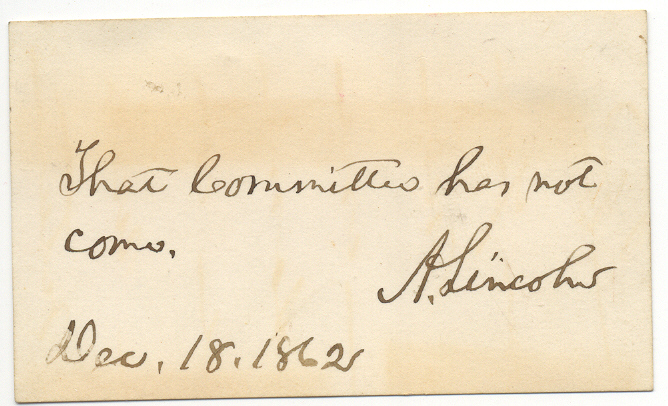 That Committee has not
come.
A. Lincoln
Dec. 18. 1862